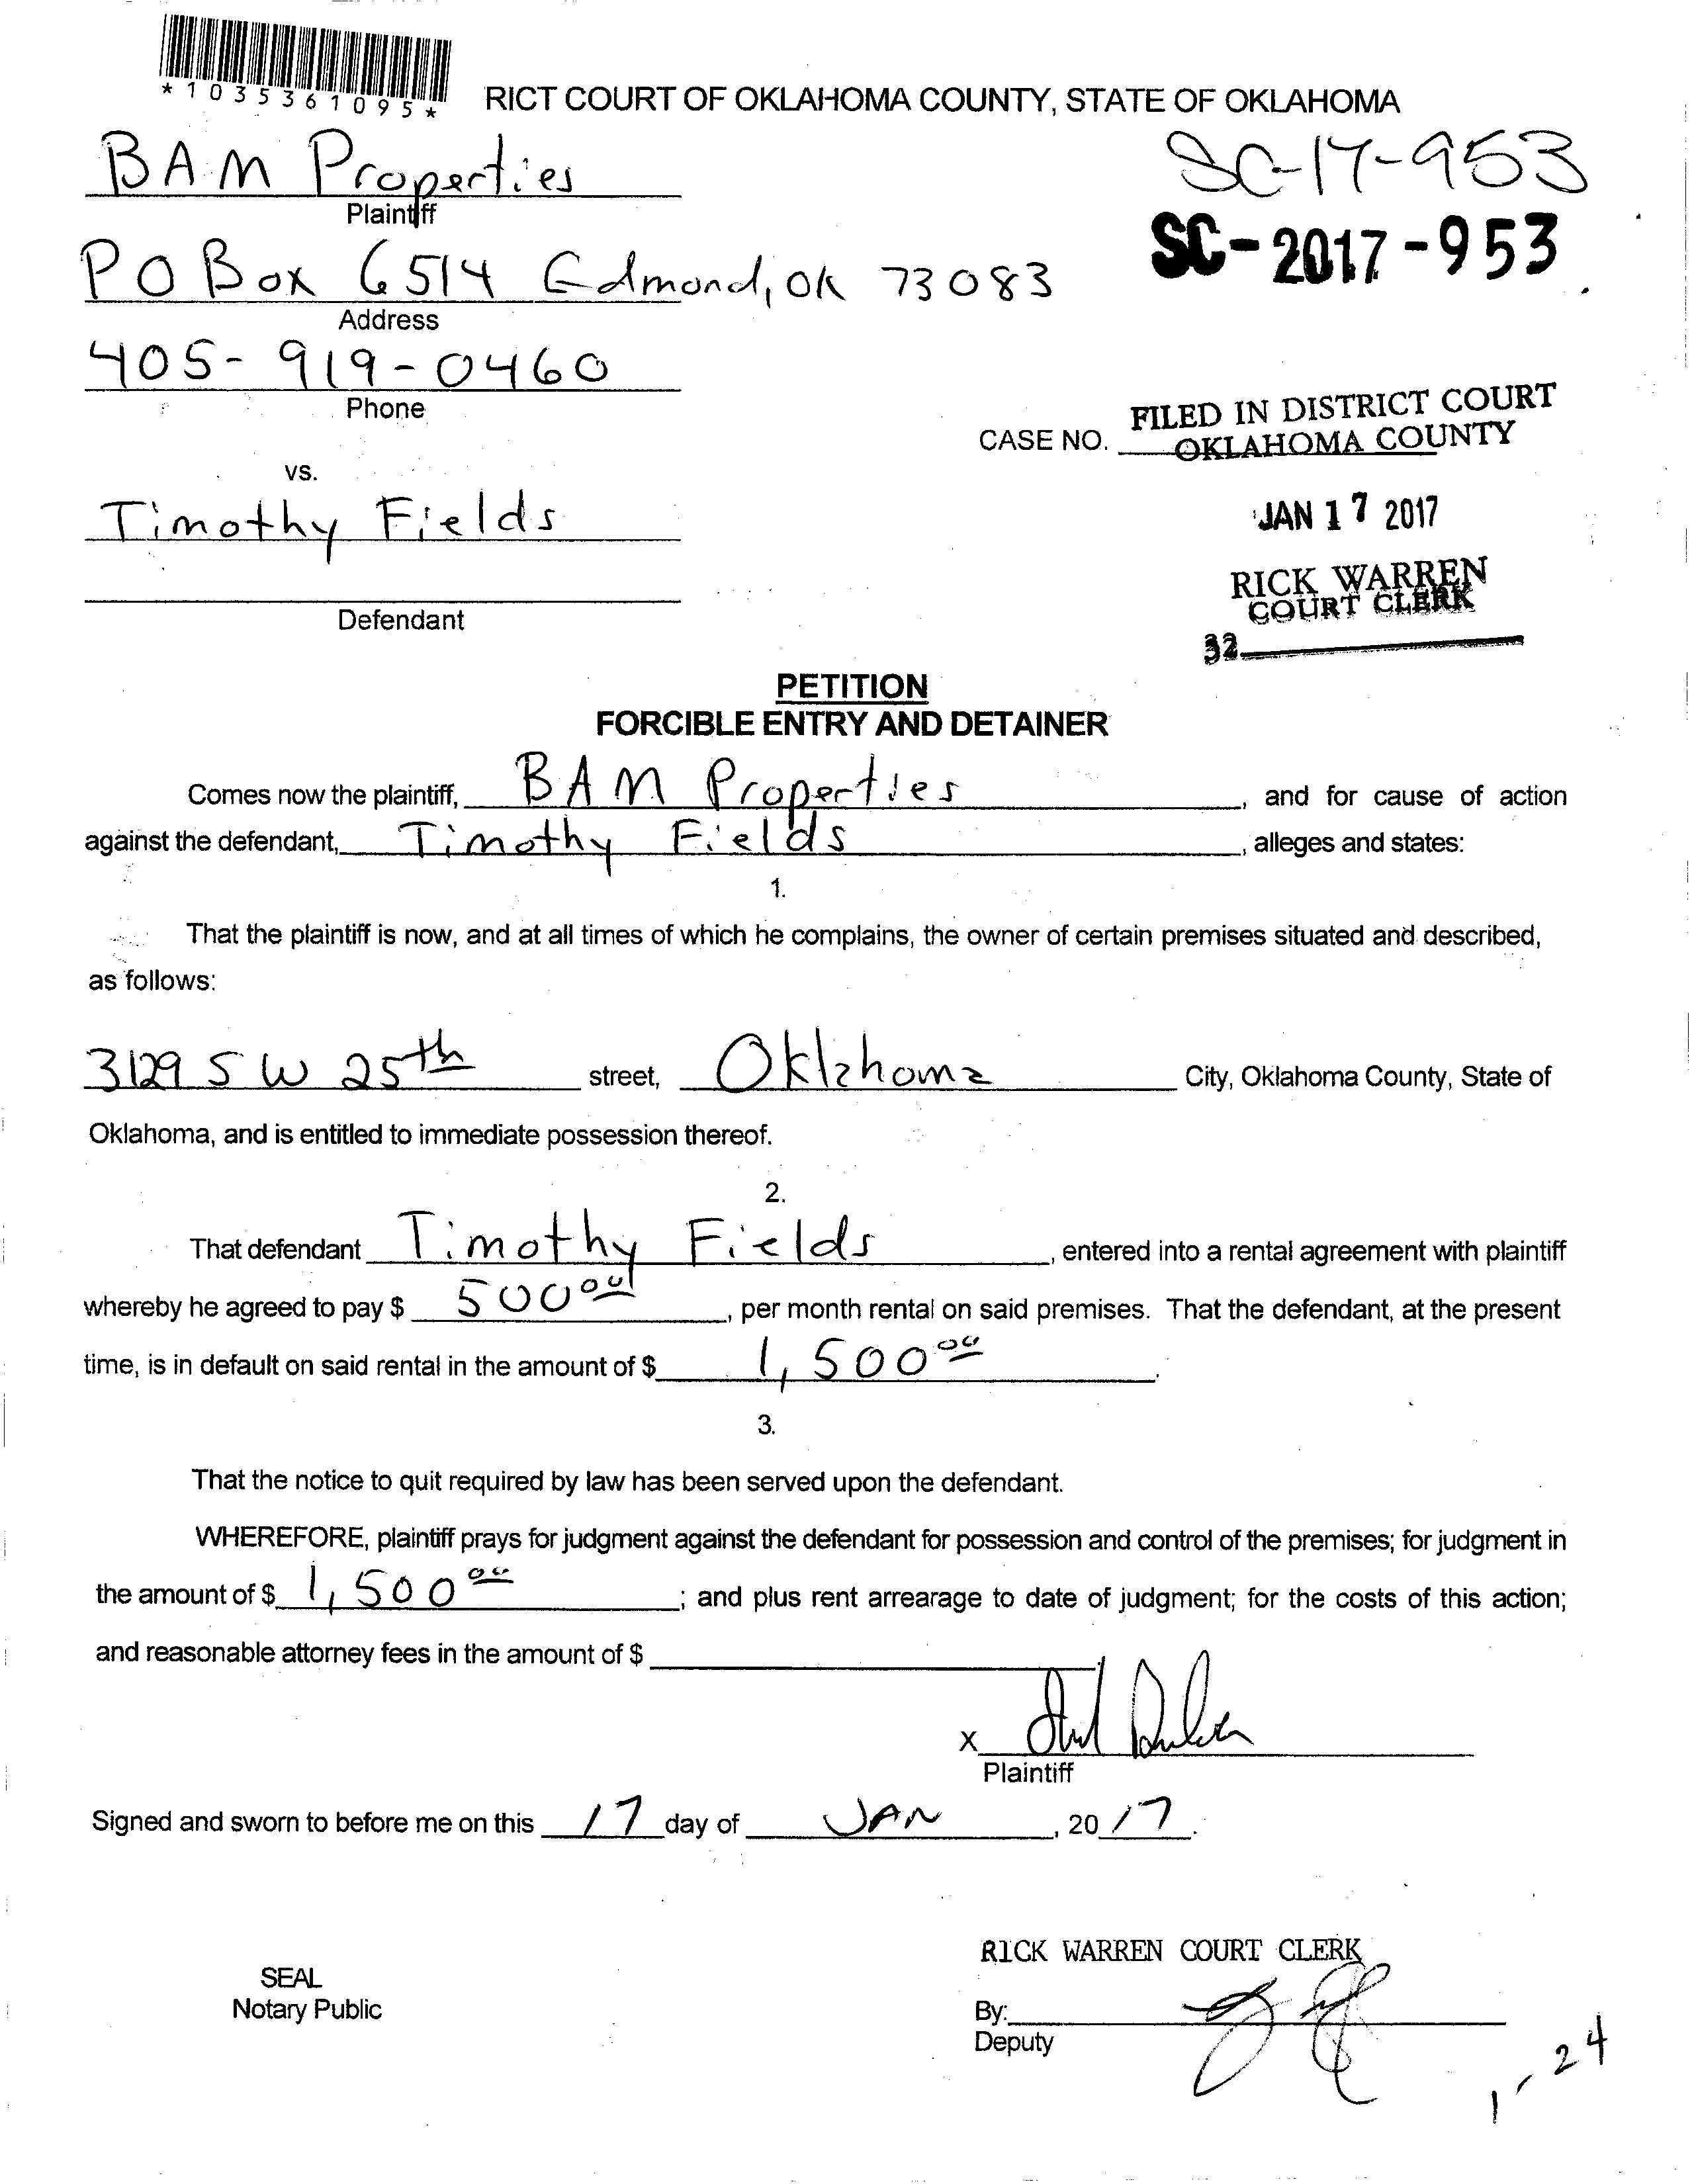 *1035361095*
RICT COURT OF OKLAHOMA COUNTY, STATE OF OKLAHOMA
BAM Properties
Plaintiff
SC-17-953
SC-2017-953
PO Box 6514 Edmond, OK 73083
Address
405-919-0460
Phone
CASE NO.
FILED IN DISTRICT COURT
OKLAHOMA COUNTY
vs.
Timothy Fields
JAN 17 2017
RICK WARREN
COURT CLERK
Defendant
32
PETITION
FORCIBLE ENTRY AND DETAINER
Comes now the plaintiff, BAM Properties, and for cause of action
against the defendant, Timothy Fields, alleges and states:
1.
That the plaintiff is now, and at all times of which he complains, the owner of certain premises situated and described,
as follows:
3129 SW 25th street, Oklahoma City, Oklahoma County, State of
Oklahoma, and is entitled to immediate possession thereof.
2.
That defendant Timothy Fields, entered into a rental agreement with plaintiff
whereby he agreed to pay $ 500 00, per month rental on said premises. That the defendant, at the present
time, is in default on said rental in the amount of $ 1,500 00.
3.
That the notice to quit required by law has been served upon the defendant.
WHEREFORE, plaintiff prays for judgment against the defendant for possession and control of the premises; for judgment in
the amount of $ 1,500 00; and plus rent arrearage to date of judgment; for the costs of this action;
and reasonable attorney fees in the amount of $
X
Plaintiff
Signed and sworn to before me on this 17 day of JAN, 20 17.
RICK WARREN COURT CLERK
SEAL
Notary Public
By:
Deputy
1-24